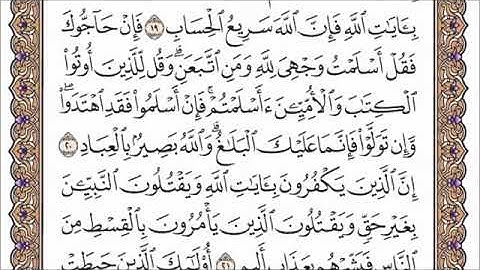 بِـَٔايَٰتِ ٱللَّهِ فَإِنَّ ٱللَّهَ سَرِيعُ ٱلْحِسَابِ ١٩ فَإِنْ حَآجُّوكَ
فَقُلْ أَسْلَمْتُ وَجْهِىَ لِلَّهِ وَمَنِ ٱتَّبَعَنِ ۗ وَقُل لِّلَّذِينَ أُوتُوا۟
ٱلْكِتَٰبَ وَٱلْأُمِّيِّـۧنَ ءَأَسْلَمْتُمْ ۚ فَإِنْ أَسْلَمُوا۟ فَقَدِ ٱهْتَدَوا۟ ۖ
وَّإِن تَوَلَّوْا۟ فَإِنَّمَا عَلَيْكَ ٱلْبَلَٰغُ ۗ وَٱللَّهُ بَصِيرٌۢ بِٱلْعِبَادِ ٢٠
إِنَّ ٱلَّذِينَ يَكْفُرُونَ بِـَٔايَٰتِ ٱللَّهِ وَيَقْتُلُونَ ٱلنَّبِيِّـۧنَ
بِغَيْرِ حَقٍّ وَيَقْتُلُونَ ٱلَّذِينَ يَأْمُرُونَ بِٱلْقِسْطِ مِنَ
ٱلنَّاسِ فَبَشِّرْهُم بِعَذَابٍ أَلِيمٍ ٢١ أُو۟لَٰٓئِكَ ٱلَّذِينَ حَبِطَتْ